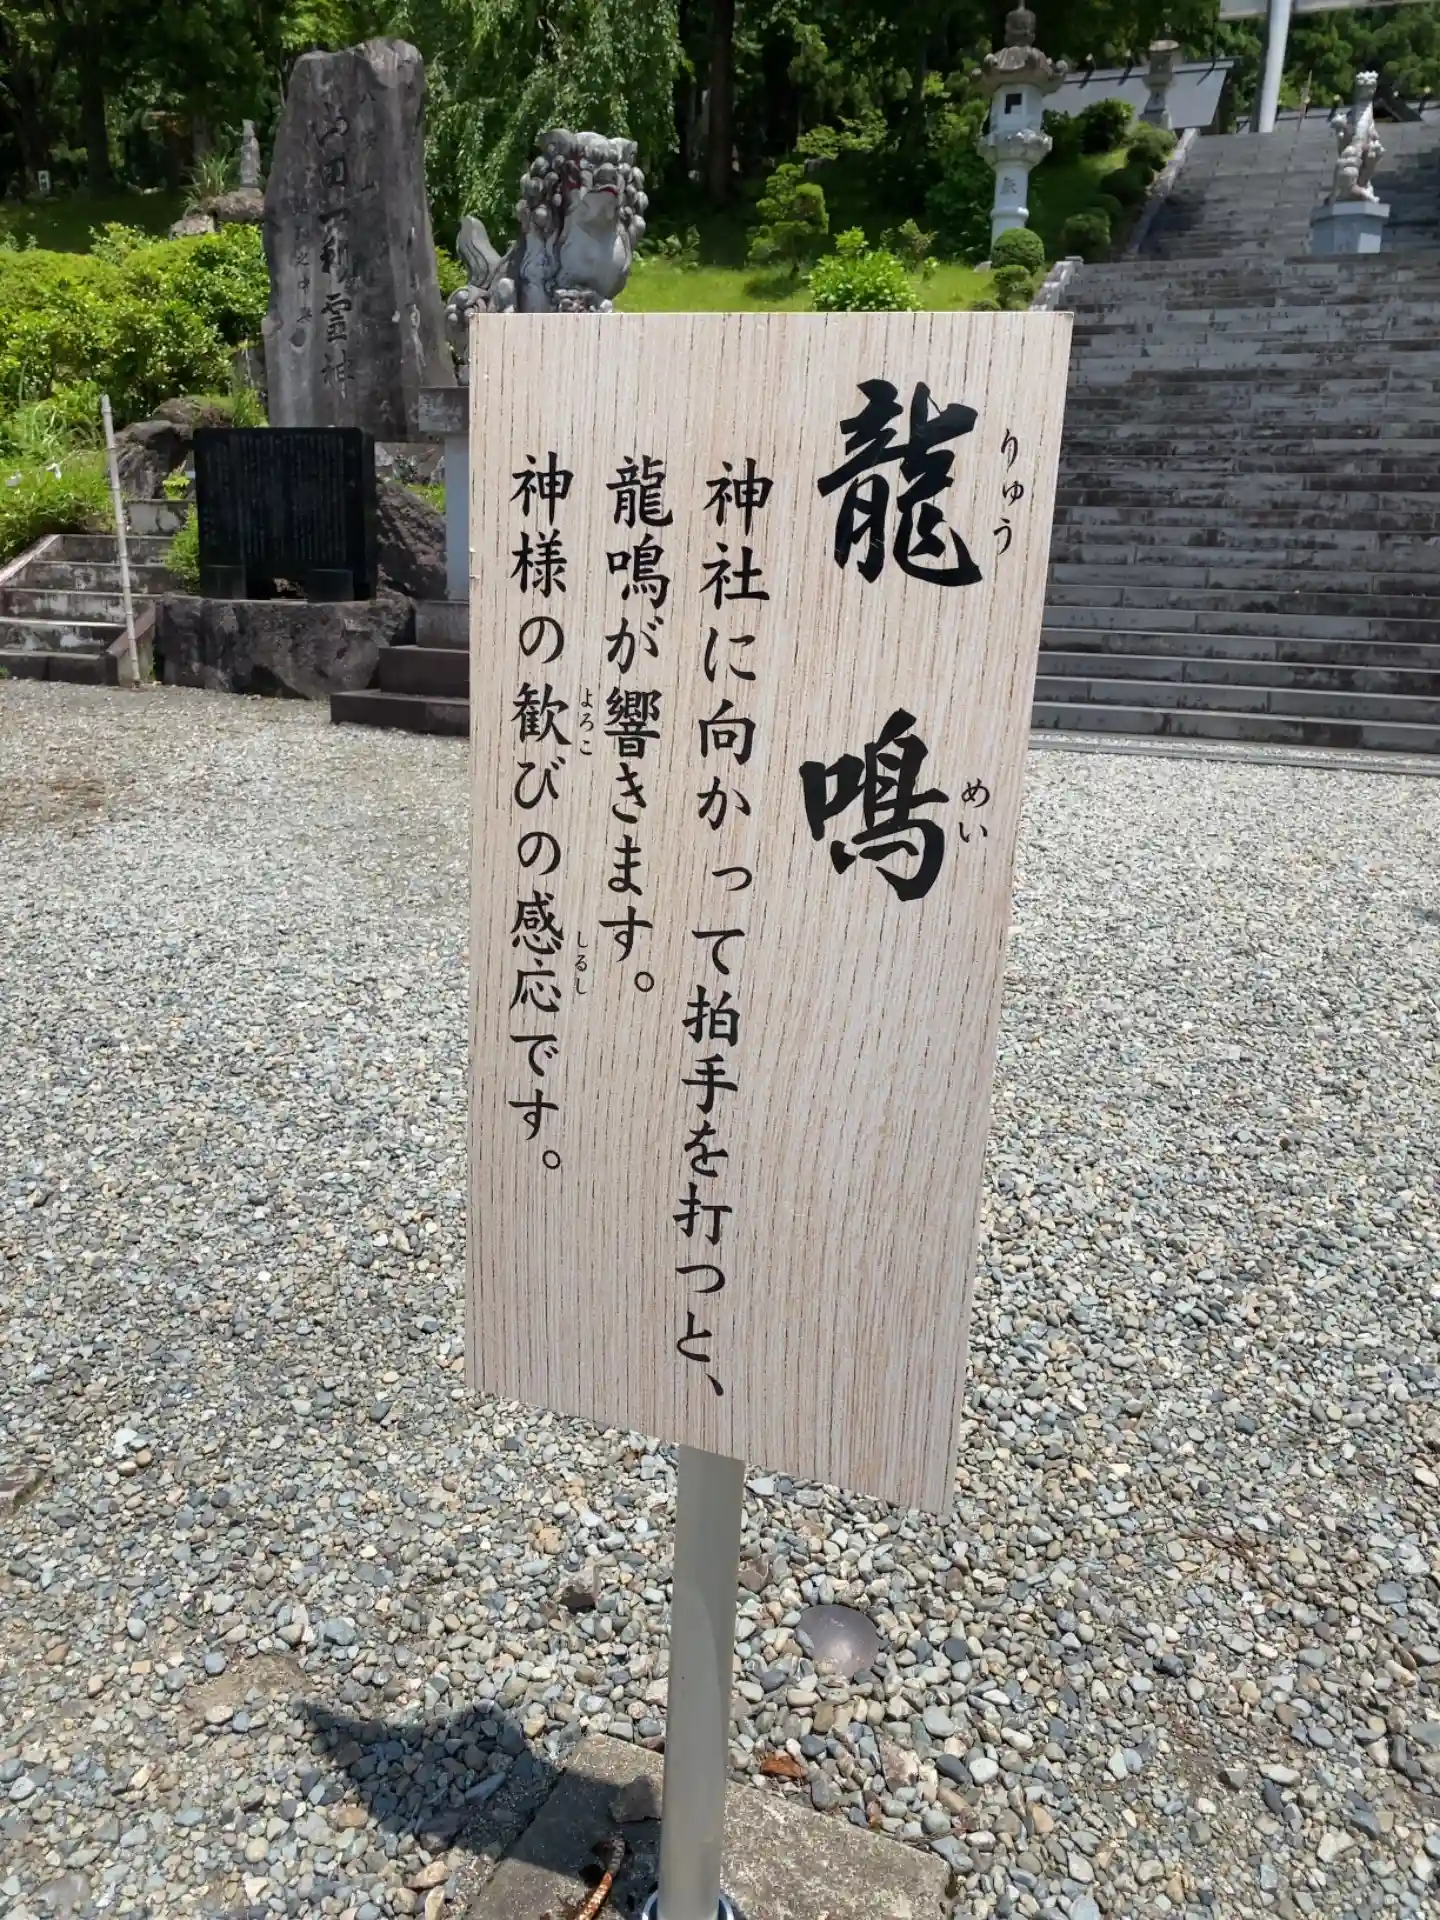 龍鳴
りゅう
めい
神社に向かって拍手を打つと、
龍鳴が響きます。
神様の歓びの感応です。
よろこ
しるし
霊神